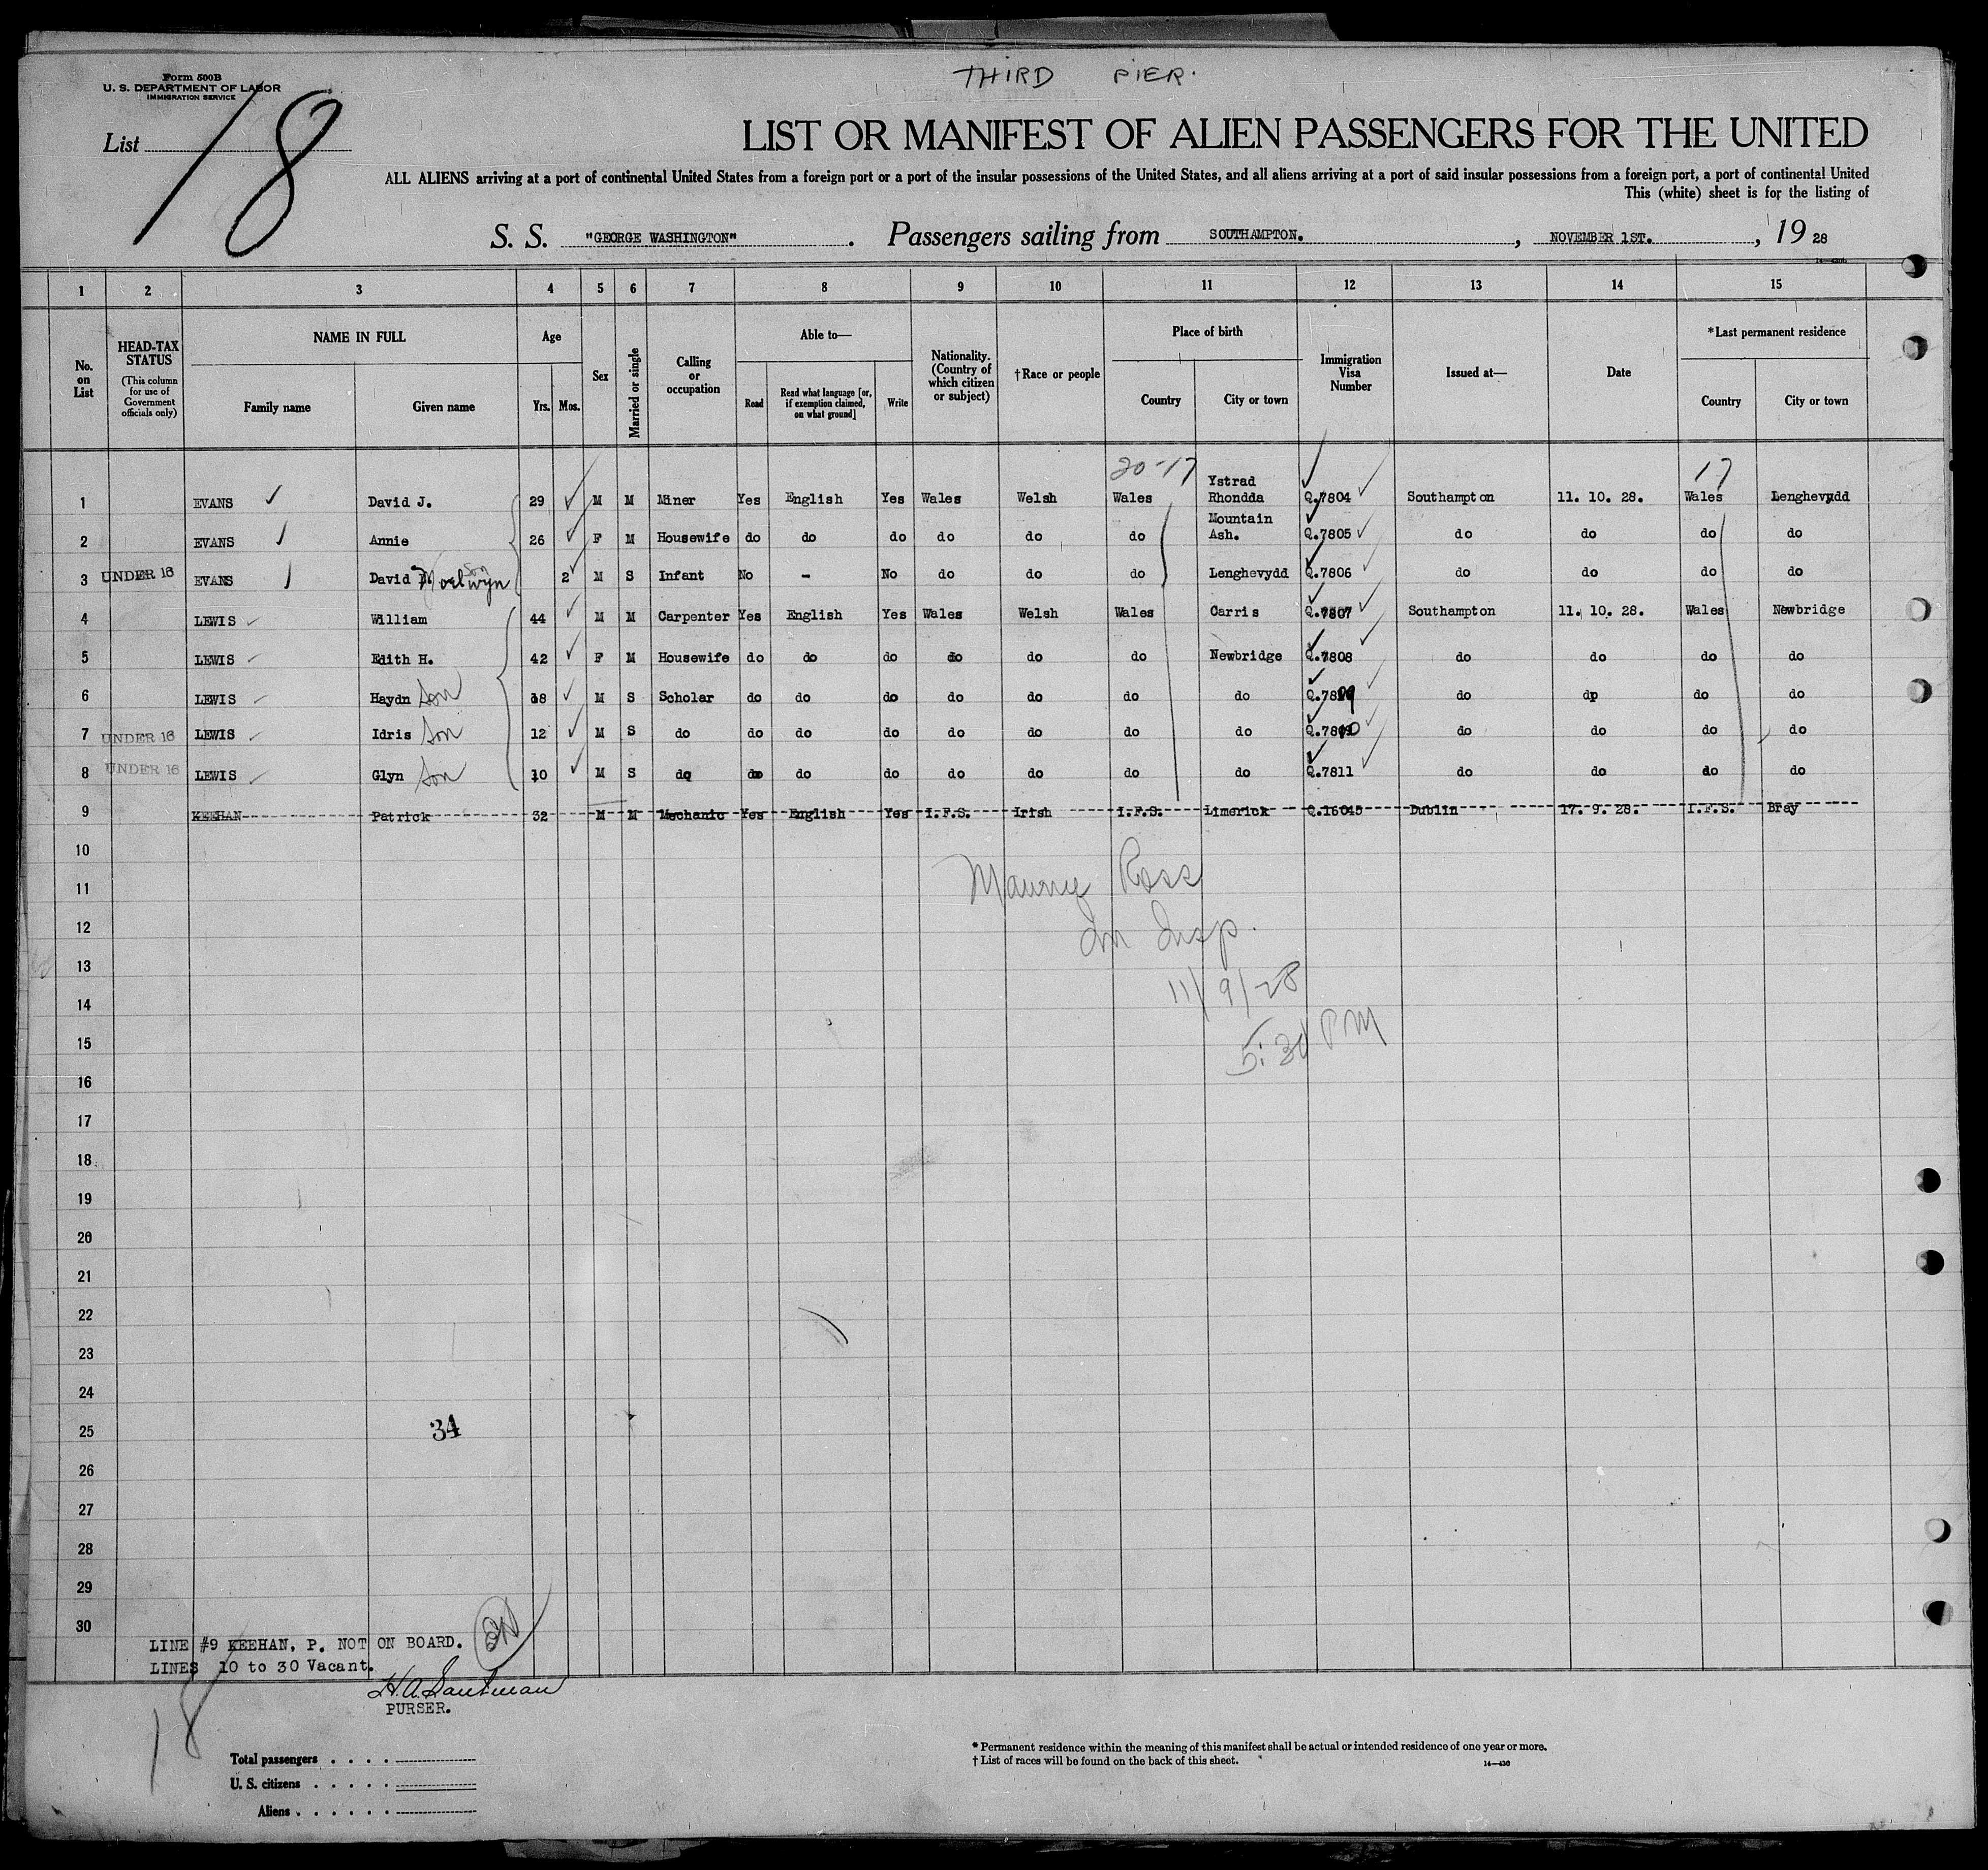 THIRD PIER.
Form 500B
U. S. DEPARTMENT OF LABOR
IMMIGRATION SERVICE
List 18
LIST OR MANIFEST OF ALIEN PASSENGERS FOR THE UNITED
ALL ALIENS arriving at a port of continental United States from a foreign port or a port of the insular possessions of the United States, and all aliens arriving at a port of said insular possessions from a foreign port, a port of continental United
This (white) sheet is for the listing of
S. S. "GEORGE WASHINGTON". Passengers sailing from SOUTHAMPTON. , NOVEMBER 1ST. , 19 28
1 2 3 4 5 6 7 8 9 10 11 12 13 14 15
No. on List
HEAD-TAX STATUS
(This column for use of Government officials only)
NAME IN FULL
Family name Given name
Age
Yrs. Mos.
Sex
Married or single
Calling or occupation
Able to—
Read Read what language [or, if exemption claimed, on what ground] Write
Nationality. (Country of which citizen or subject)
†Race or people
Place of birth
Country City or town
Immigration Visa Number
Issued at—
Date
*Last permanent residence
Country City or town
20-17 17
1 EVANS David J. 29 M M Miner Yes English Yes Wales Welsh Wales Ystrad Rhondda Q.7804 Southampton 11. 10. 28. Wales Lenghevydd
2 EVANS Annie 26 F M Housewife do do do do do do Mountain Ash. Q.7805 do do do do
3 UNDER 16 EVANS David son 2 M S Infant No - No do do do Lenghevydd Q.7806 do do do do
4 LEWIS William 44 M M Carpenter Yes English Yes Wales Welsh Wales Carris Q.7807 Southampton 11. 10. 28. Wales Newbridge
5 LEWIS Edith H. 42 F M Housewife do do do do do do Newbridge Q.7808 do do do do
6 LEWIS Haydn Son 18 M S Scholar do do do do do do do do do do do
7 UNDER 16 LEWIS Idris Son 12 M S do do do do do do do do do do do do
8 UNDER 16 LEWIS Glyn Son 10 M S do do do do do do do do Q.7811 do do do do
9 KEEHAN Patrick 32 M M Mechanic Yes English Yes I.F.S. Irish I.F.S. Limerick Q.16045 Dublin 17. 9. 28. I.F.S. Bray
10
11 Ross
12 Im Insp.
13
14 11/9/28
15 5:30 PM
16
17
18
19
20
21
22
23
24
25 34
26
27
28
29
30
LINE #9 KEEHAN, P. NOT ON BOARD.
LINES 10 to 30 Vacant.
PURSER.
18
Total passengers
U. S. citizens
Aliens
* Permanent residence within the meaning of this manifest shall be actual or intended residence of one year or more.
† List of races will be found on the back of this sheet.
14—430